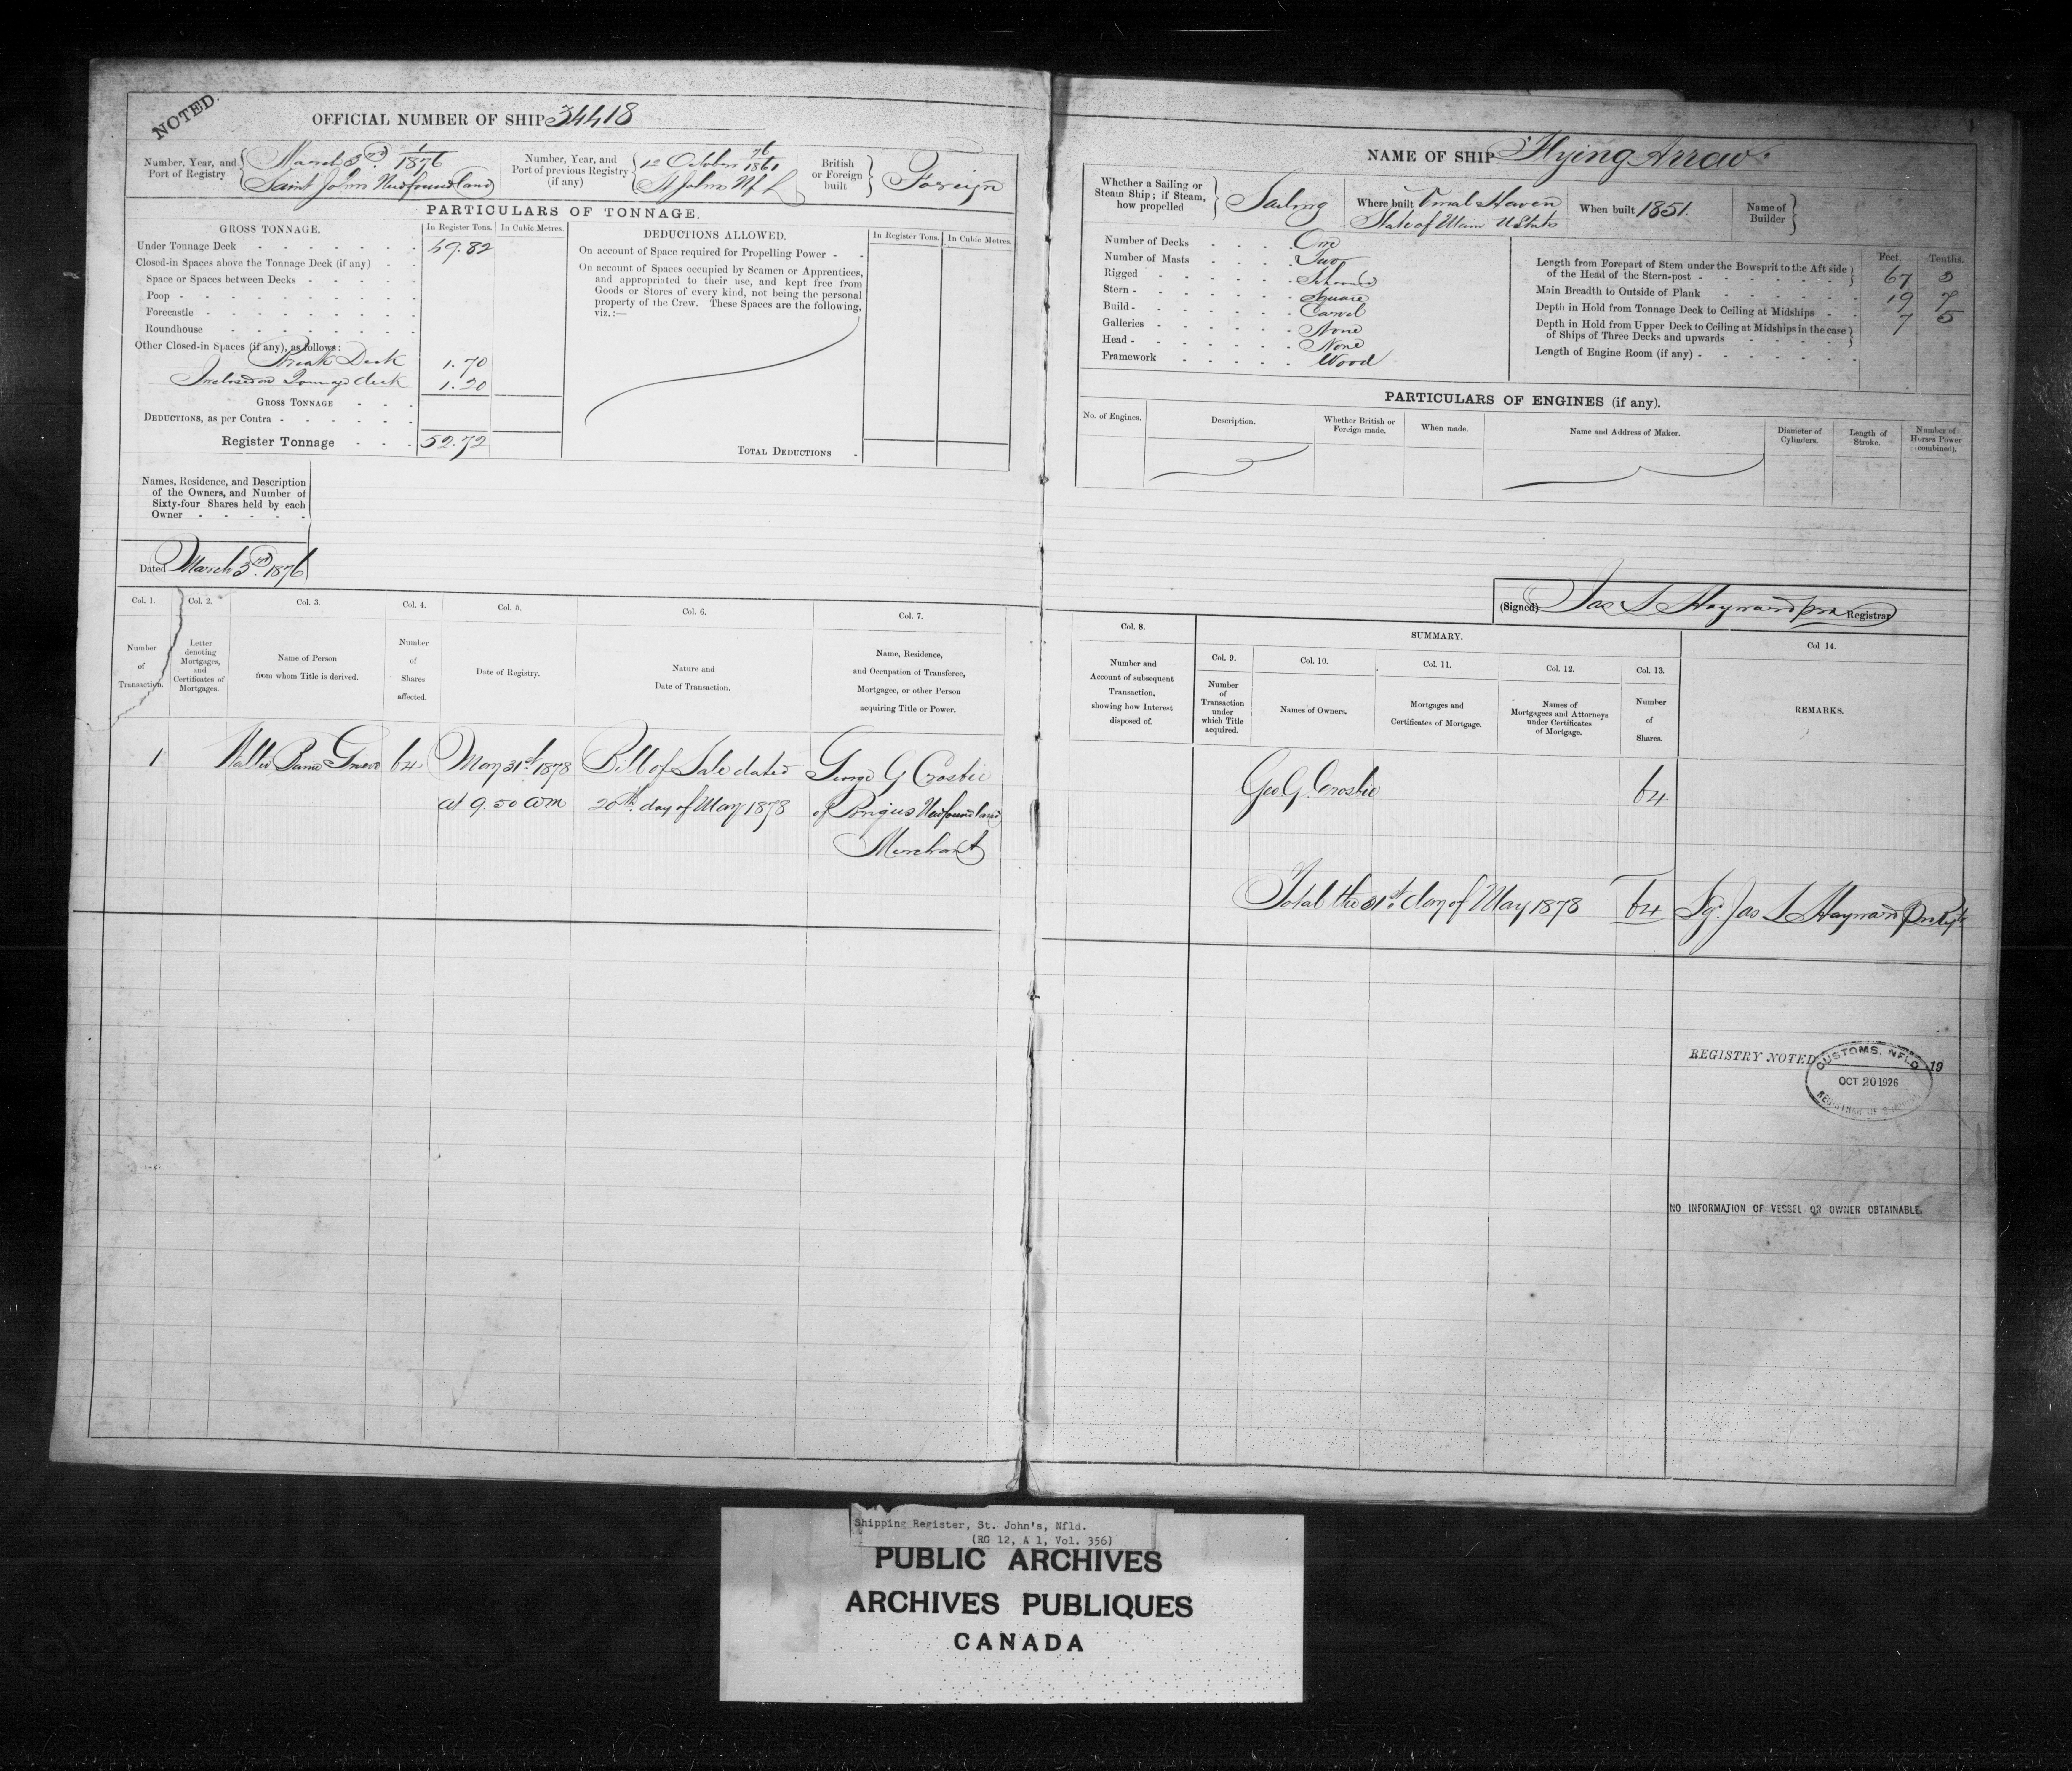 NOTED.
OFFICIAL NUMBER OF SHIP 34418
Number, Year, and Port of Registry
March 3rd 1/1876
Saint Johns Newfoundland
Number, Year, and Port of previous Registry (if any)
October 76/1861
St Johns Nfl
British or Foreign built
Foreign
PARTICULARS OF TONNAGE.
GROSS TONNAGE.
In Register Tons.
In Cubic Metres.
Under Tonnage Deck 49.82
Closed-in Spaces above the Tonnage Deck (if any)
Space or Spaces between Decks
Poop
Forecastle
Roundhouse
Other Closed-in Spaces (if any), as follows:
Break Deck 1.70
Inclosed on Tonnage deck 1.20
GROSS TONNAGE
DEDUCTIONS, as per Contra
Register Tonnage 52.72
DEDUCTIONS ALLOWED.
In Register Tons.
In Cubic Metres.
On account of Space required for Propelling Power
On account of Spaces occupied by Seamen or Apprentices,
and appropriated to their use, and kept free from
Goods or Stores of every kind, not being the personal
property of the Crew. These Spaces are the following,
viz.:—
TOTAL DEDUCTIONS
Names, Residence, and Description
of the Owners, and Number of
Sixty-four Shares held by each
Owner
Dated March 3rd. 1876
Col. 1. Col. 2. Col. 3. Col. 4. Col. 5. Col. 6. Col. 7.
Number of Transaction.
Letter denoting Mortgages, and Certificates of Mortgages.
Name of Person from whom Title is derived.
Number of Shares affected.
Date of Registry.
Nature and Date of Transaction.
Name, Residence, and Occupation of Transferee, Mortgagee, or other Person acquiring Title or Power.
1 Walter Baine Grieve 64 May 31st 1878 Bill of Sale dated George G Crosbie
at 9.50 am 20th day of May 1878 of Brigus Newfoundland
Merchant
1
NAME OF SHIP "Flying Arrow"
Whether a Sailing or Steam Ship; if Steam, how propelled
Sailing
Where built Vinal Haven
State of Maine U States
When built 1851.
Name of Builder
Number of Decks One
Number of Masts Two
Rigged Schooner
Stern Square
Build Carvel
Galleries None
Head None
Framework Wood
Feet. Tenths.
Length from Forepart of Stem under the Bowsprit to the Aft side
of the Head of the Stern-post 67
Main Breadth to Outside of Plank 19 7
Depth in Hold from Tonnage Deck to Ceiling at Midships 7 5
Depth in Hold from Upper Deck to Ceiling at Midships in the case
of Ships of Three Decks and upwards
Length of Engine Room (if any)
PARTICULARS OF ENGINES (if any).
No. of Engines.
Description.
Whether British or Foreign made.
When made.
Name and Address of Maker.
Diameter of Cylinders.
Length of Stroke.
Number of Horses Power (combined).
(Signed) Jas S Hayward Registrar
Col. 8.
SUMMARY.
Col 14.
Col. 9. Col. 10. Col. 11. Col. 12. Col. 13.
Number and Account of subsequent Transaction, showing how Interest disposed of.
Number of Transaction under which Title acquired.
Names of Owners.
Mortgages and Certificates of Mortgage.
Names of Mortgagees and Attorneys under Certificates of Mortgage.
Number of Shares.
REMARKS.
Geo. G. Crosbie 64
Total the 31st day of May 1878 64 Sg. Jas S Hayward
REGISTRY NOTED 19
CUSTOMS, NFLD
OCT 20 1926
REGISTRAR OF SHIPPING
NO INFORMATION OF VESSEL OR OWNER OBTAINABLE.
Shipping Register, St. John's, Nfld.
(RG 12, A 1, Vol. 356)
PUBLIC ARCHIVES
ARCHIVES PUBLIQUES
CANADA